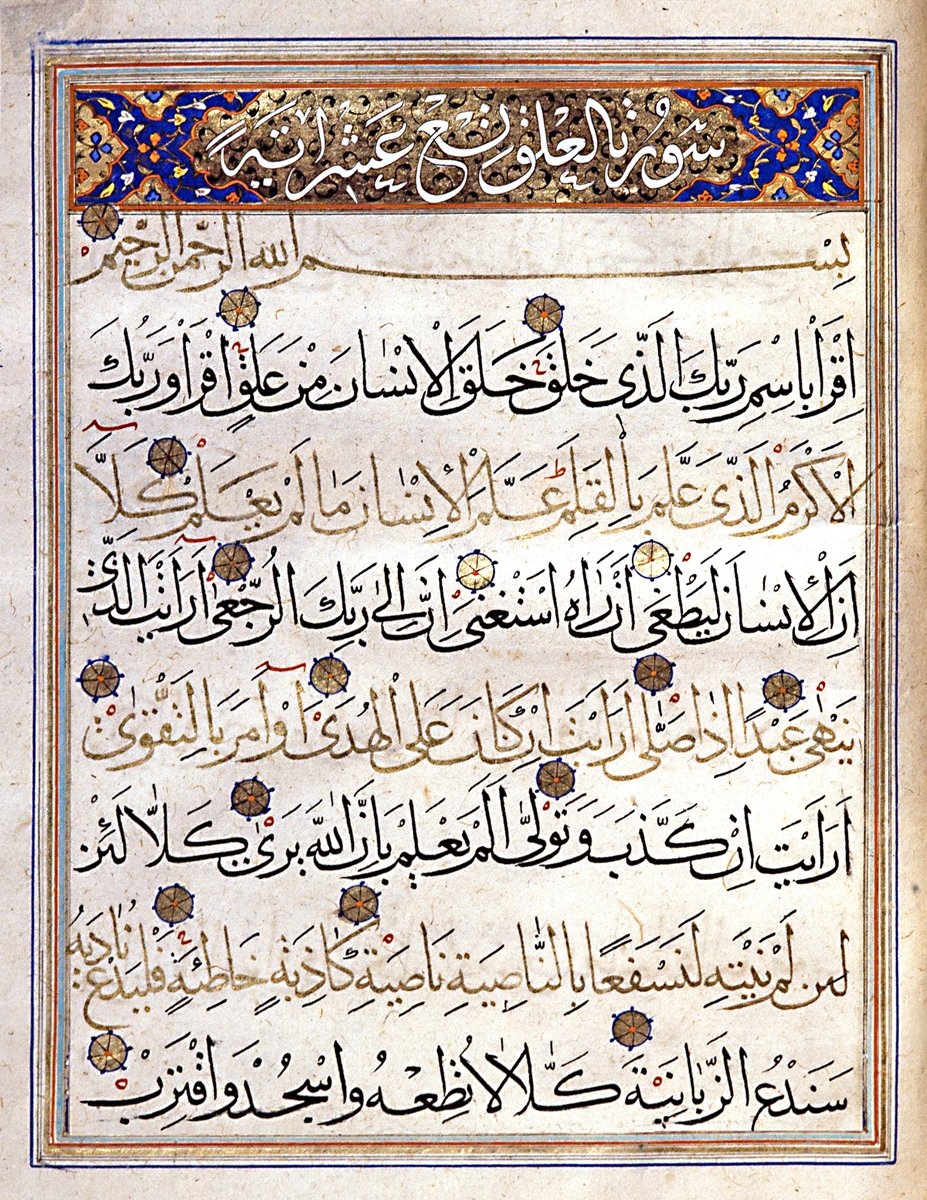 سورة العلق تسع عشر اية
بِسْمِ الله الرَّحْمن الرَّحيم
اِقْرَأْ بِاسْمِ رَبِّكَ الَّذى خَلَقَ خَلَقَ الْاِنْسٰانَ مِنْ عَلَقٍ اِقْرَأْ وَرَبُّكَ
الْاَكْرَمُ الَّذى عَلَّمَ بِالْقَلَمِ عَلَّمَ الْاِنْسٰانَ مٰا لَمْ يَعْلَمْ كَلّٰا
اِنَّ الْاِنْسٰانَ لَيَطْغى اَنْ رَاٰهُ اسْتَغْنى اِنَّ اِلىٰ رَبِّكَ الرُّجْعى اَرَاَيْتَ الَّذى
يَنْهى عَبْدًا اِذٰا صَلّٰى اَرَاَيْتَ اِنْ كٰانَ عَلَى الْهُدى اَوْ اَمَرَ بِالتَّقْوى
اَرَاَيْتَ اِنْ كَذَّبَ وَتَوَلّىٰ اَلَمْ يَعْلَمْ بِاَنَّ اللّٰهَ يَرىٰ كَلّٰا لَئِنْ
لئن لَمْ يَنْتَهِ لَنَسْفَعًا بِالنّٰاصِيَةِ نٰاصِيَةٍ كٰاذِبَةٍ خٰاطِئَةٍ فَلْيَدْعُ نٰادِيَهُ
سَنَدْعُ الزَّبٰانِيَةَ كَلّٰا لٰا تُطِعْهُ وَاسْجُدْ وَاقْتَرِبْ